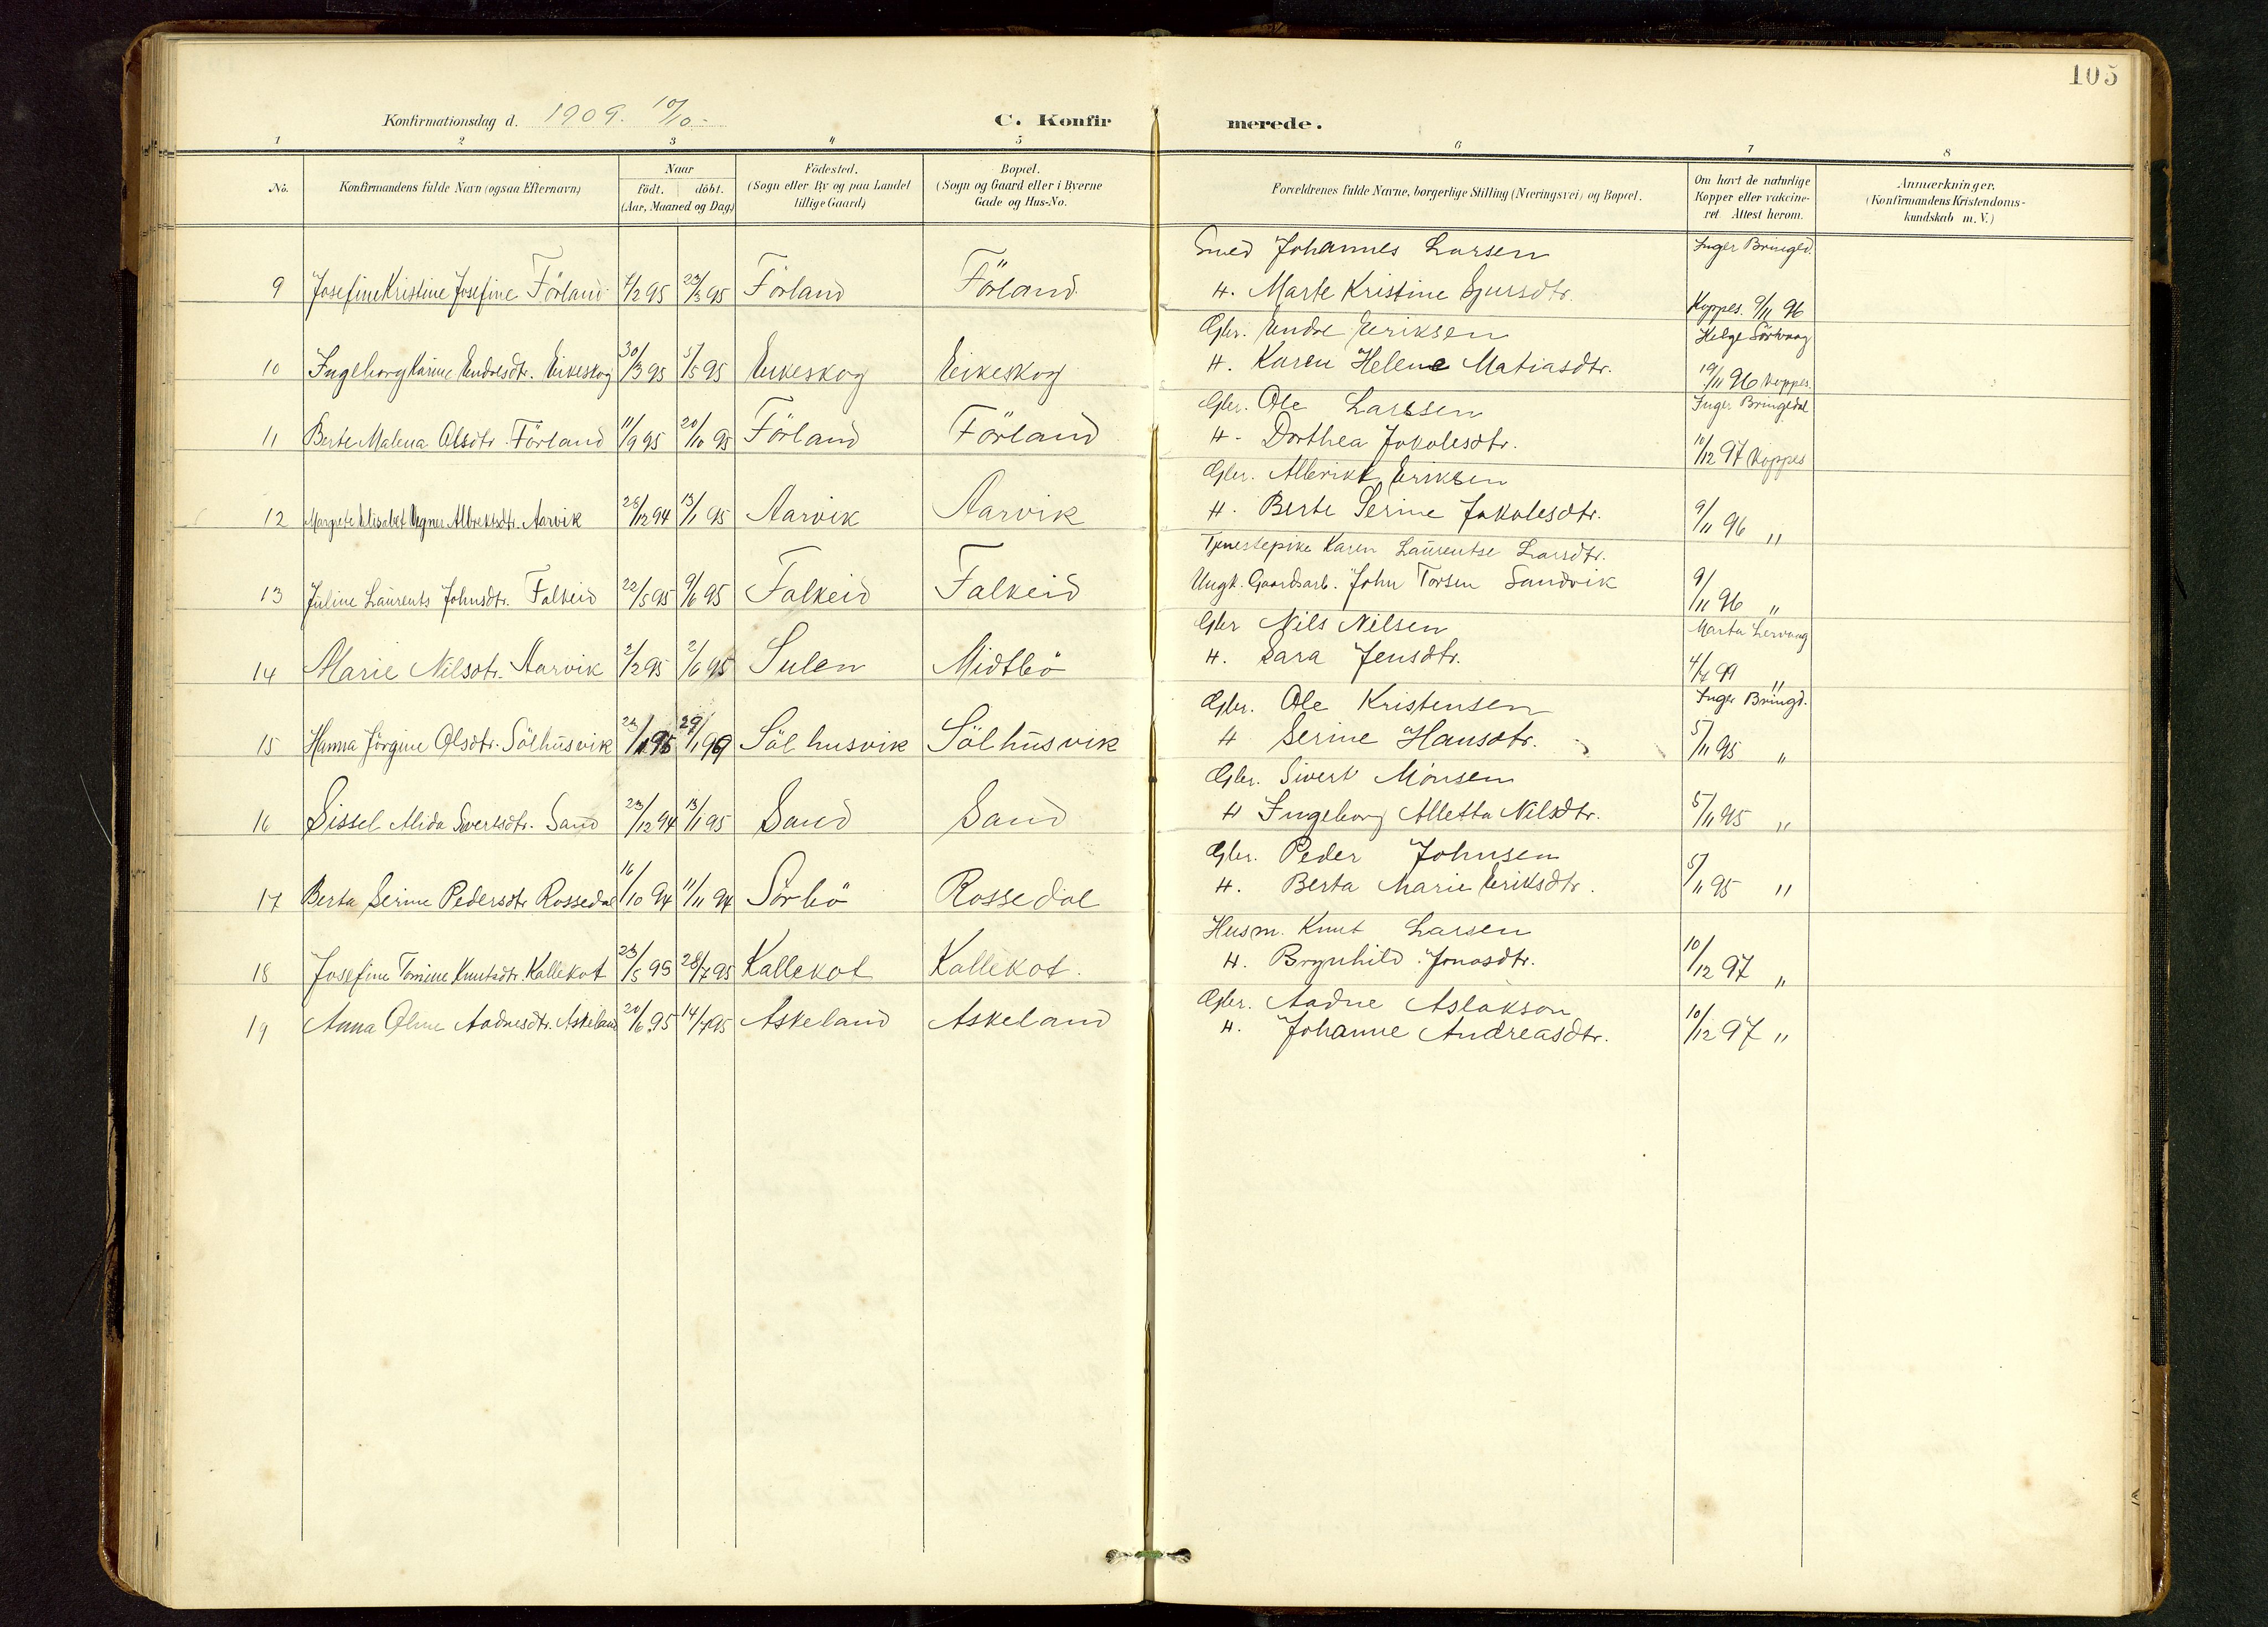 105
Konfirmationsdag d. 1909. 10/10.
C. Konfirmerede.
1 2 3 4 5 6 7 8
No.
Konfirmandens fulde Navn (ogsaa Efternavn)
Naar
födt. döbt.
(Aar, Maaned og Dag.)
Födested.
(Sogn eller By og paa Landet
tillige Gaard)
Bopæl.
(Sogn og Gaard eller i Byerne
Gade og Hus-No.
Forældrenes fulde Navne, borgerlige Stilling (Næringsvei) og Bopæl.
Om havt de naturlige
Kopper eller vakcine-
ret. Attest herom.
Anmærkninger.
(Konfirmandens Kristendoms-
kundskab m. V.)
Smed Johannes Larsen Inger Bringed.
9 Josefine Kristine Josefine Förland 4/2 95 23/3 95 Förland Förland H. Marte Kristine Sjursdtr. Koppes. 9/11 96
Gbr. Endre Eriksen Helge Sörvaag
10 Ingeborg Karine Endresdtr. Eikeskog 30/3 95 5/5 95 Eikeskog Eikeskog H. Karen Helene Matiasdtr. 19/11 96 koppes.
Gbr. Ole Larssen Inger Bringedal
11 Berte Malena Olsdtr. Förland 11/9 95 20/10 95 Förland Förland H. Dorthea Jakobsdtr. 10/12 97 koppes
Gbr. Albrikt Eriksen
12 Margrete Elisabet Agnes Albrektsdtr. Aarvik 28/12 94 13/1 95 Aarvik Aarvik H. Berte Serine Jakobsdtr. 9/11 96 "
Tjenestepike Karen Laurentse Larsdtr.
13 Juline Laurents Johnsdtr. Falkeid 22/5 95 9/6 95 Falkeid Falkeid Ungk. Gaardsarb. John Torsen Sandvik 9/11 96 "
Gbr Nils Nilsen Marta Lervaag
14 Marie Nilsdtr. Aarvik 2/2 95 2/6 95 Sulen Midtbö H. Sara Jensdtr. 4/7 99 "
Gbr. Ole Kristensen Inger Bringd.
15 Hanna Jörgine Olsdtr. Sölhusvik 29/1 Sölhusvik Sölhusvik H Serine Hansdtr. 5/11 95 "
Gbr. Sivert Monsen
16 Sissel Alida Sivertsdtr. Sand 23/12 94 13/1 95 Sand Sand H Ingeborg Alletta Nilsdtr. 5/11 95 "
Gbr. Peder Johnsen
17 Berta Serine Pedersdtr Rossedal 16/10 94 11/11 94 Sörbö Rossedal H. Berta Marie Eriksdtr. 5/11 95 "
Husm. Knut Larsen
18 Josefine Tomine Knutsdtr. Kallekot 23/5 95 28/7 95 Kallekot Kallekot. H. Brynhild Jonasdtr. 10/12 97 "
Gbr. Aadne Aslakson
19 Anna Oline Aadnesdtr. Askeland 20/6 95 14/7 95 Askeland Askeland H. Johanne Andreasdtr. 10/12 97 "